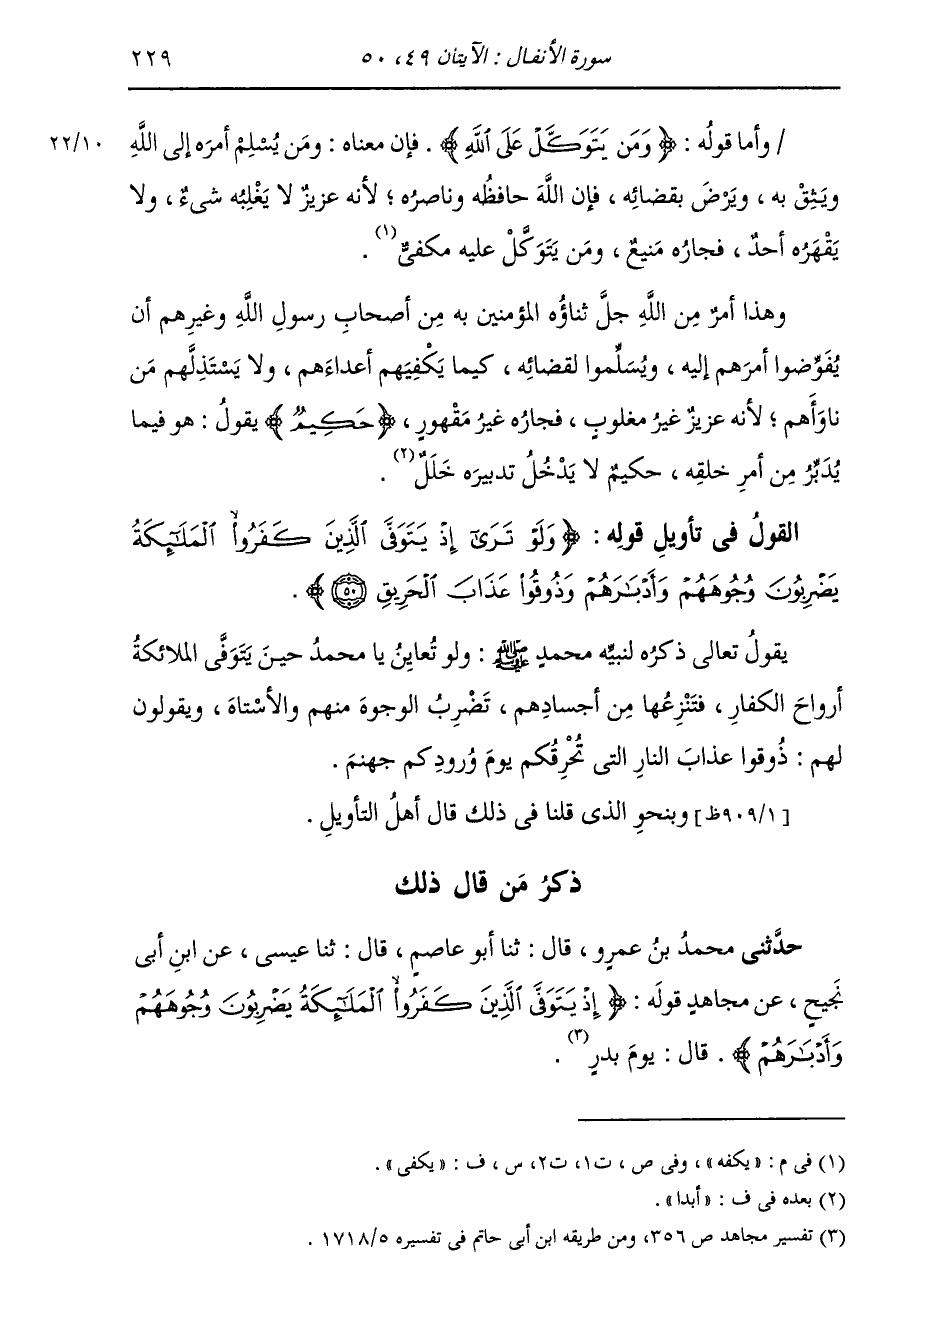 سورة الأنفال : الآيتان ٤٩، ٥٠ ٢٢٩
/ وأما قولُه : ﴿ وَمَن يَتَوَكَّلْ عَلَى ٱللَّهِ ﴾ . فإن معناه : ومَن يُسْلِمْ أمرَه إلى اللَّهِ ٢٢/١٠
ويَثِقْ به ، ويَرْضَ بقضائِه ، فإن اللَّهَ حافظُه وناصرُه ؛ لأنه عزيزٌ لا يَغْلِبُه شىءٌ ، ولا
يَقْهَرُه أحدٌ ، فجارُه مَنيعٌ ، ومَن يَتَوَكَّلْ عليه مكفىٌّ(١) .
وهذا أمرٌ مِن اللَّهِ جلَّ ثناؤُه المؤمنين به مِن أصحابِ رسولِ اللَّهِ وغيرِهم أن
يُفَوِّضوا أمرَهم إليه ، ويُسَلِّموا لقضائِه ، كيما يَكْفِيَهم أعداءَهم ، ولا يَسْتَذِلَّهم مَن
ناوَأَهم ؛ لأنه عزيزٌ غيرُ مغلوبٍ ، فجارُه غيرُ مَقْهورٍ ، ﴿ حَكِيمٌ ﴾ يقولُ : هو فيما
يُدَبِّرُ مِن أمرِ خلقِه ، حكيمٌ لا يَدْخُلُ تدبيرَه خَلَلٌ(٢) .
القولُ فى تأويلِ قولِه : ﴿ وَلَوْ تَرَىٰٓ إِذْ يَتَوَفَّى ٱلَّذِينَ كَفَرُوا۟ ۙ ٱلْمَلَـٰٓئِكَةُ
يَضْرِبُونَ وُجُوهَهُمْ وَأَدْبَـٰرَهُمْ وَذُوقُوا۟ عَذَابَ ٱلْحَرِيقِ ۝٥٠ ﴾ .
يقولُ تعالى ذكرُه لنبيِّه محمدٍ ﷺ : ولو تُعاينُ يا محمدُ حينَ يَتَوَفَّى الملائكةُ
أرواحَ الكفارِ ، فتَنْزِعُها مِن أجسادِهم ، تَضْرِبُ الوجوهَ منهم والأسْتاهَ ، ويقولون
لهم : ذُوقوا عذابَ النارِ التى تُحْرِقُكم يومَ وُرودِكم جهنمَ .
[٩٠٩/١ظ] وبنحوِ الذى قلنا فى ذلك قال أهلُ التأويلِ .
ذكرُ مَن قال ذلك
حدَّثنى محمدُ بنُ عمرٍو ، قال : ثنا أبو عاصمٍ ، قال : ثنا عيسى ، عن ابنِ أبى
نَجيحٍ ، عن مجاهدٍ قولَه : ﴿ إِذْ يَتَوَفَّى ٱلَّذِينَ كَفَرُوا۟ ۙ ٱلْمَلَـٰٓئِكَةُ يَضْرِبُونَ وُجُوهَهُمْ
وَأَدْبَـٰرَهُمْ ﴾ . قال : يومَ بدرٍ(٣) .
(١) فى م : « يكفه » ، وفى ص ، ت١، ت٢، س ، ف : « يكفى » .
(٢) بعده فى ف : « أبدا » .
(٣) تفسير مجاهد ص ٣٥٦، ومن طريقه ابن أبى حاتم فى تفسيره ١٧١٨/٥ .